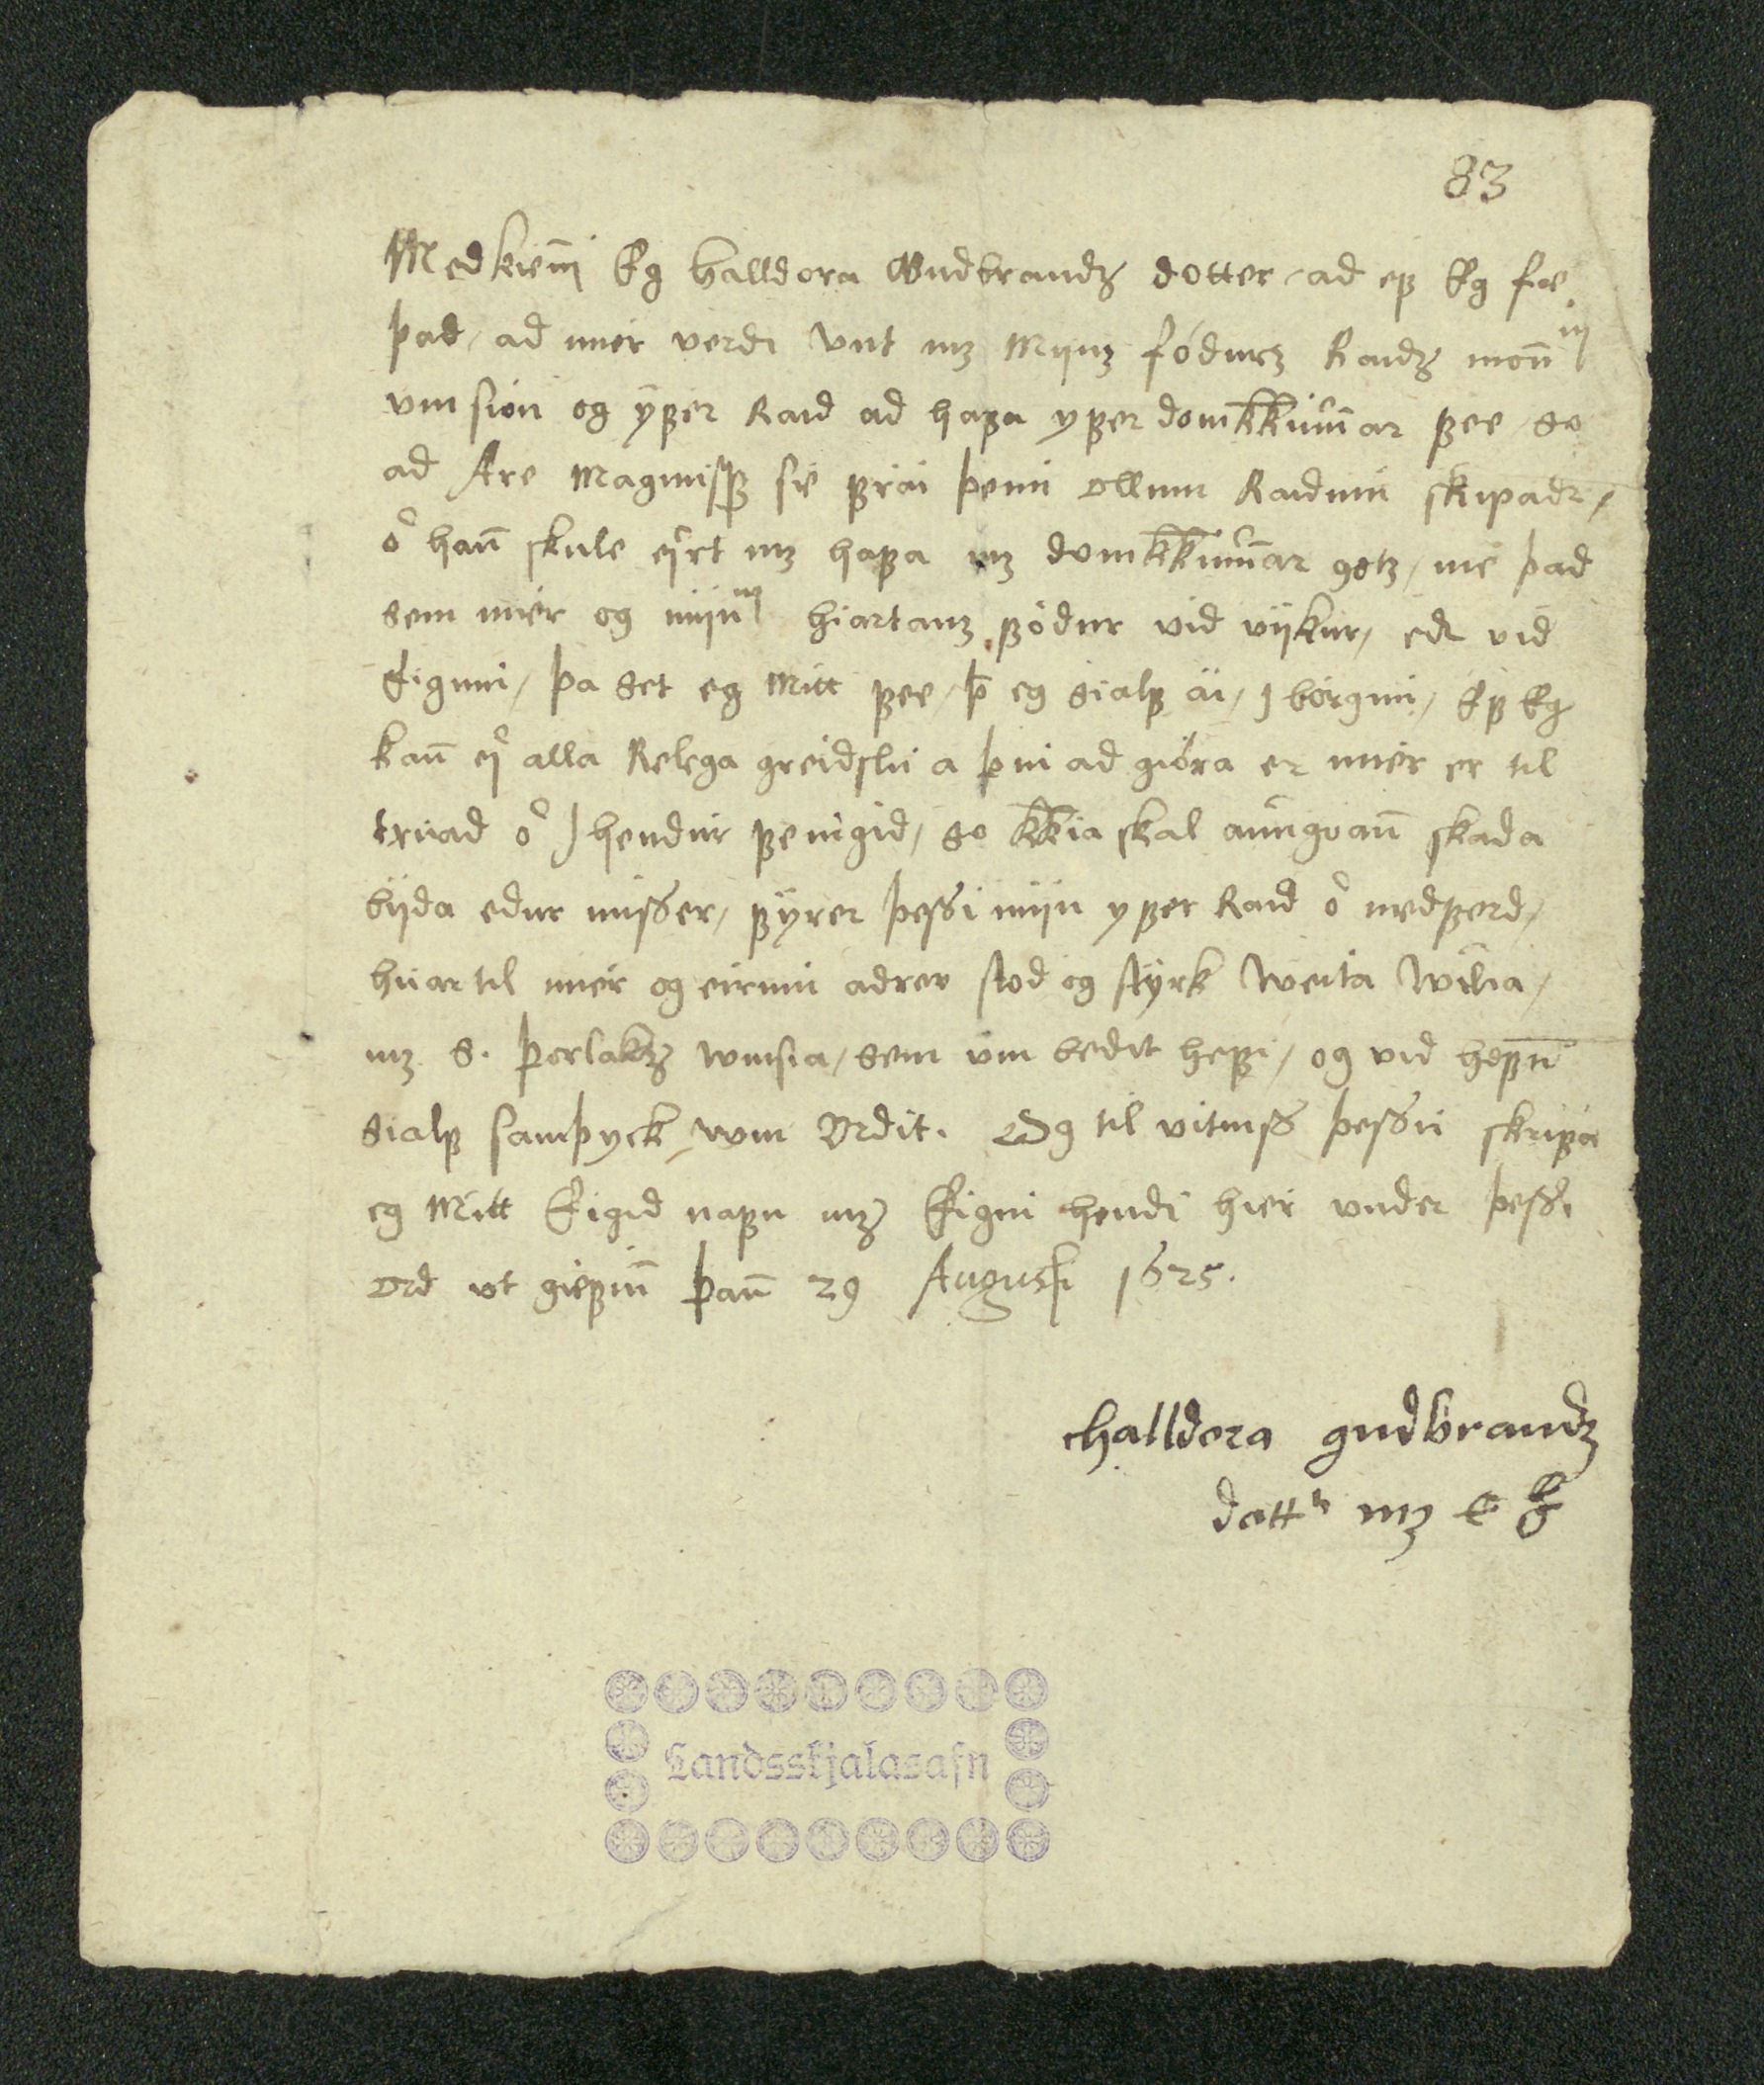 83
Medkienni Eg Halldora Gudbrandz dotter, ad ef Eg fæ
þad, ad mier verdi vnt mz Mijnz fódurz Raidz monnum
vmsion og ÿfer Raid ad hafa yfer domkkiunnar fee, so
ad Are Magnuss sie frái þeim ollum Raidum skipadr,
oc hann skule eckert mz hafa mz domkkiunnar gotz, nie þad
sem mier og mijnum hiartanz fódur vid vijkur, edr vid
Eignum, þa set eg Mitt fee, þad eg sialf äi, J borgun, Ef Eg
kann ecki alla Relega greidslu a þui ad gióra er mier er til
trúad oc J hendur feingid, so kkia skal aungvann skada
býda edur misser, fÿrer þessi mijn yfer Raid oc medferd,
huar til mier og eirnin adrer stod og stÿrk Weita Wilia,
mz S. Þorlakz vmsia, sem um bedit hefi, og vid hefur
sialf samþyck vm Ordit. Og til vitniss þessu skrifa
eg Mitt Eigid nafn mz Eigin hendi hier under þessi
Ord vt giefinn þann 29 Augusti 1625.
Halldora gudbrandz
dotter mz E H
Landsskjalasafn